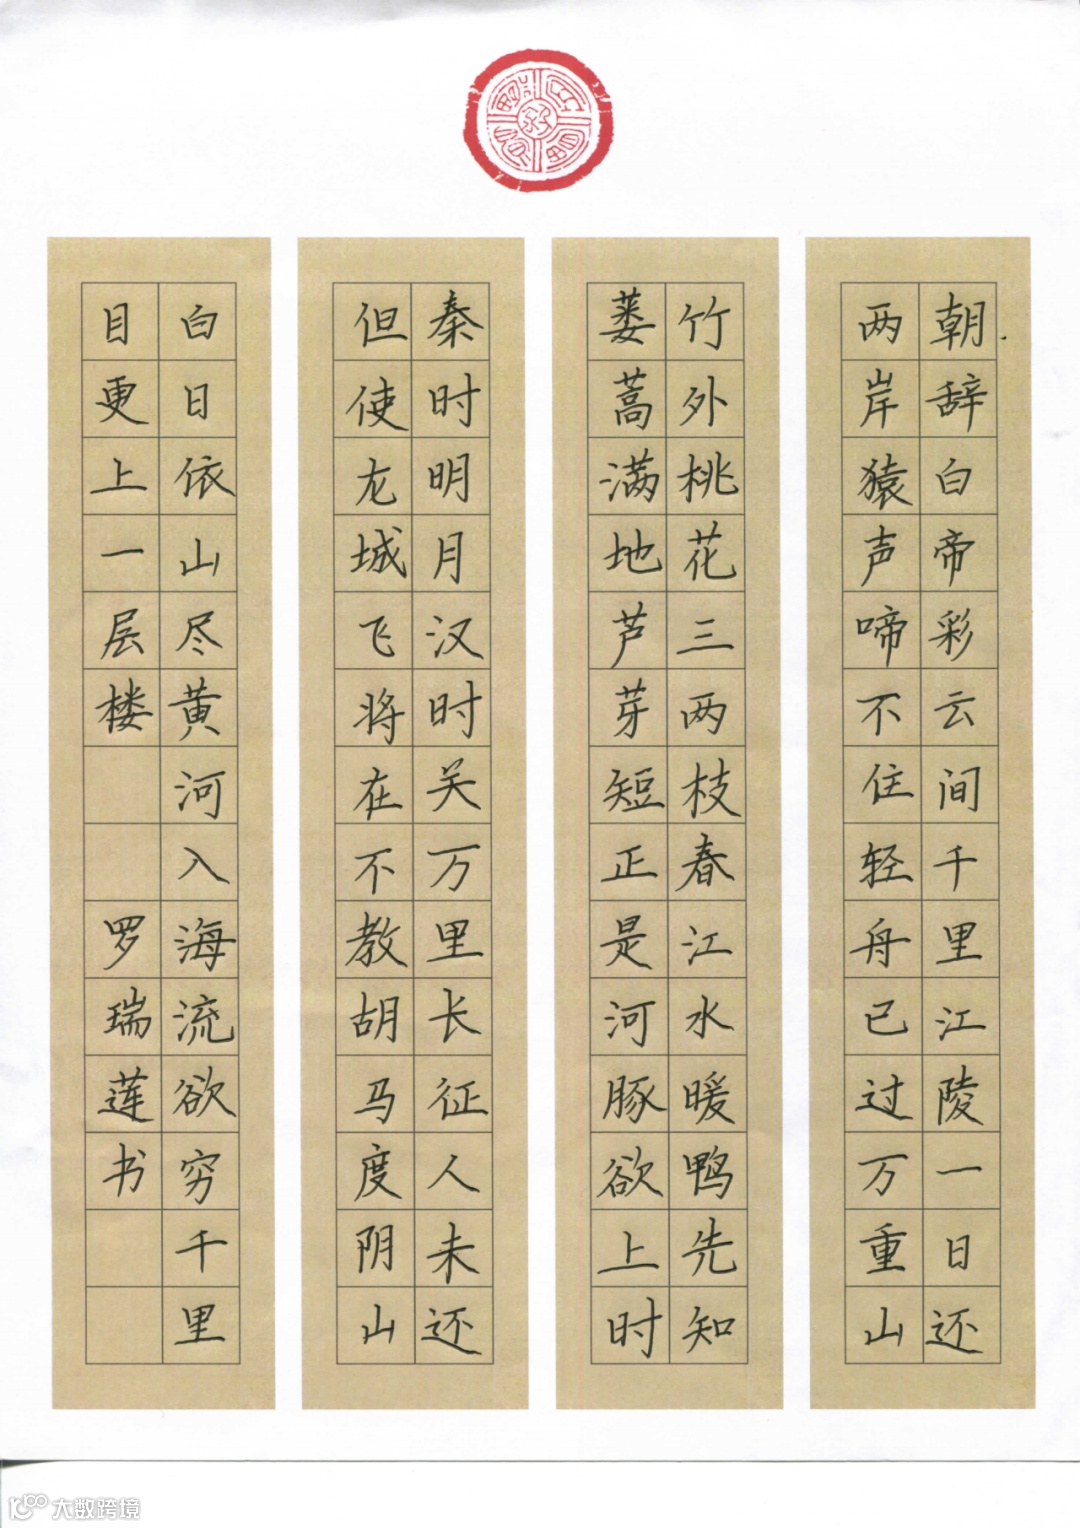 朝辞白帝彩云间千里江陵一日还
两岸猿声啼不住轻舟已过万重山
竹外桃花三两枝春江水暖鸭先知
蒌蒿满地芦芽短正是河豚欲上时
秦时明月汉时关万里长征人未还
但使龙城飞将在不教胡马度阴山
白日依山尽黄河入海流欲穷千里
目更上一层楼 罗瑞莲书
大数跨境